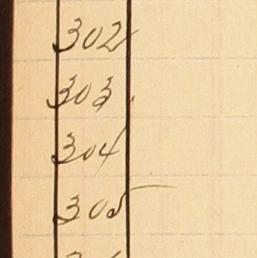 302
303
304
305